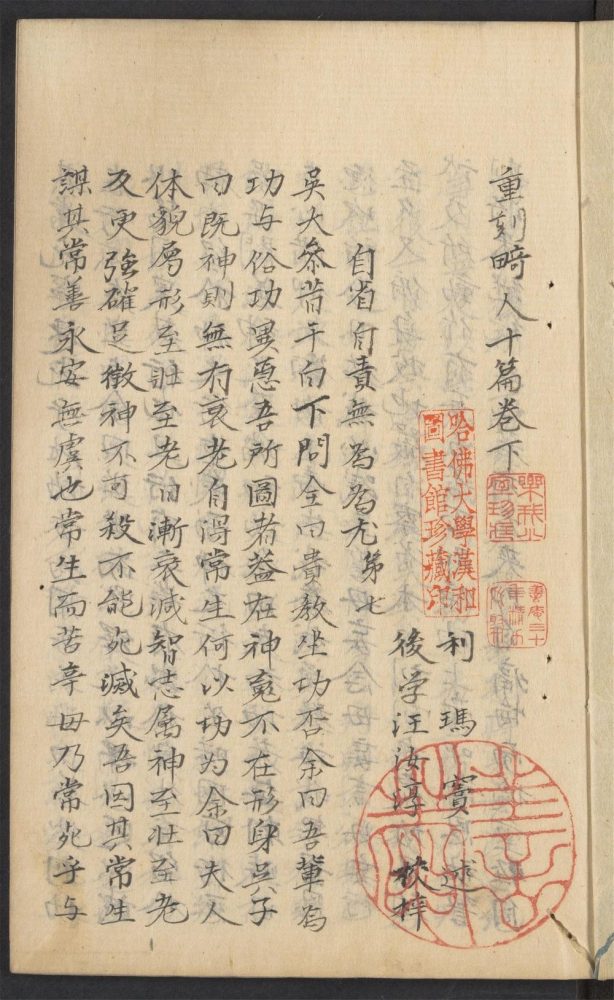 重刻畸人十篇卷下
利瑪竇述
後学汪汝淳校梓
哈佛大學漢和圖書館珍藏印
自省自責無為為尤 第七
吳大參昔于白下問余曰貴教坐功否余曰吾輩為
功与俗功異惡吾所圖者葢在神寬不在形身吳子
曰既神則無有衰老自淂常生何以功为余曰夫人
体貌屬形至壯至老日漸衰減智志属神至壮至老
及更強確足徵神不可殺不能死滅矣吾因其常生
謀其常善永安無虞也常生而苦辛毋乃常死乎与